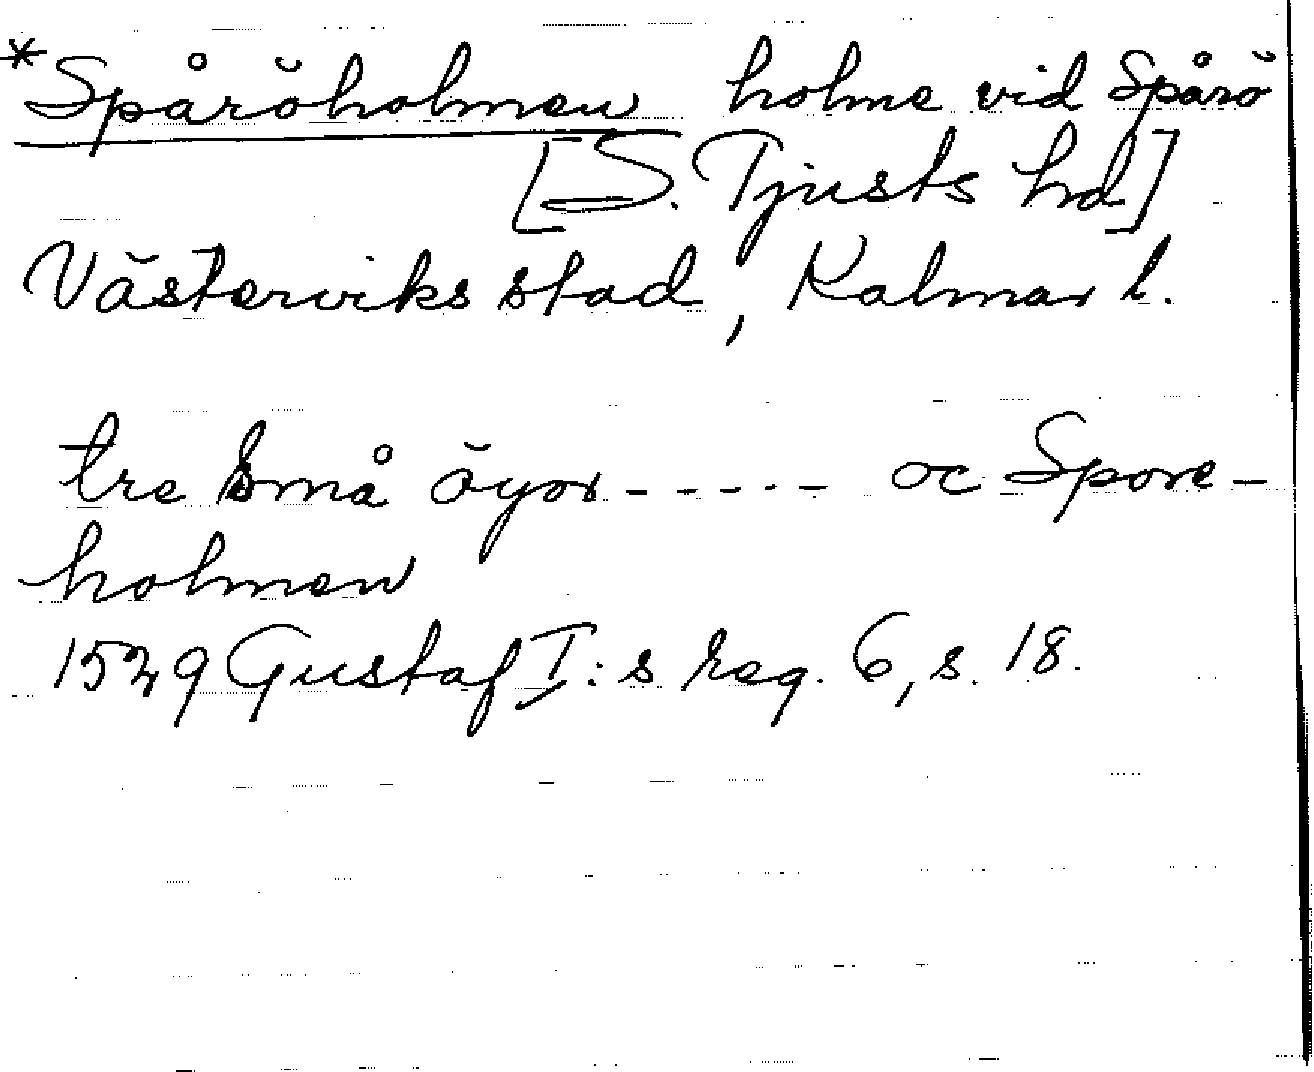 *Spåröholmen holme vid Spårö
[S. Tjusts hd]
Västerviks stad, Kalmar l.
tre små öyor - - - - - oc Spore-
holmen
1529 Gustaf I:s reg. 6, s. 18.